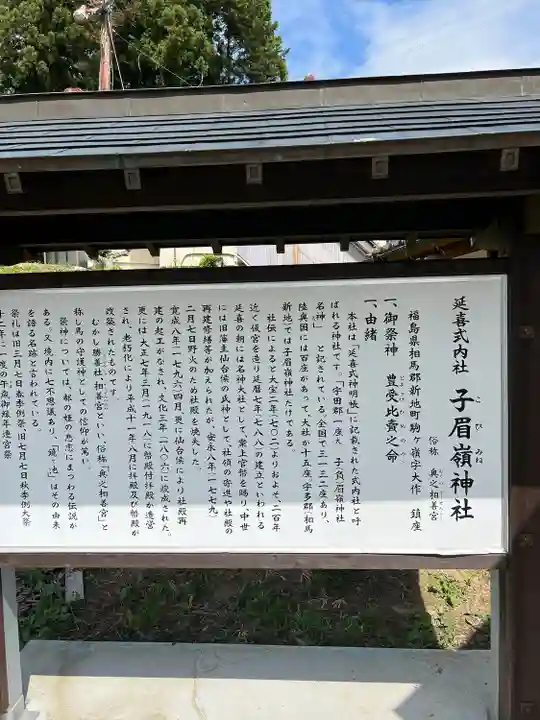 延喜式内社 子眉嶺神社
こびみね
俗称 奥之相善宮
福島県相馬郡新地町駒ヶ嶺字大作 鎮座
一、御祭神 豊受比売之命
とようけひめのみこと
一、由緒
本社は「延喜式神明帳」に記載された式内社と呼
ばれる神社です。「宇田郡一座大 子負嶺神社
名神」 と記されている。全国で三一三二座あり、
陸奥国には百座があって、大社が十五座。宇多郡(相馬
新地)では子眉嶺神社だけである。
社伝によると大宝二年(七〇二)よりおよそ、二百年
近く仮宮を造り延暦七年(七八八)の建立といわれる
延喜の朝には名神大社として、案上官幣を賜り、中世
には旧藩主仙台候の氏神として、社領の寄進や社殿の
再建修繕等が加えられたが、安永八年(一七七九)
二月七日野火のため社殿を焼失した。
寛成八年(一七九六)四月、更に仙台候により社殿再
建の起工がなされ、文化三年(一八〇六)に竣成された。
更には大正七年三月(一九一八)に幣殿付拝殿が造営
され、老朽化により平成十一年八月に拝殿及び幣殿が
改築されたものです。
むかし勝善社(相善宮)といい、俗称「奥之相善宮」と
称し馬の守護神としての信仰が篤い。
祭神については、都の姫の悲恋にまつわる伝説が
ある。又、境内に七不思議あり、「鏡ヶ池」はその由来
を語る名跡と言われている。
祭礼は旧三月七日春季例祭、旧七月七秋季例大祭
十二年に一度の午歳御縁年遷宮祭